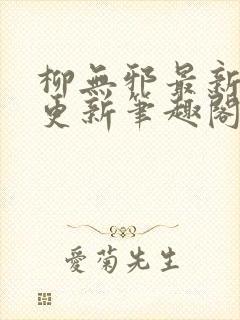 柳無邪最新
更新筆趣閣
愛菊先生